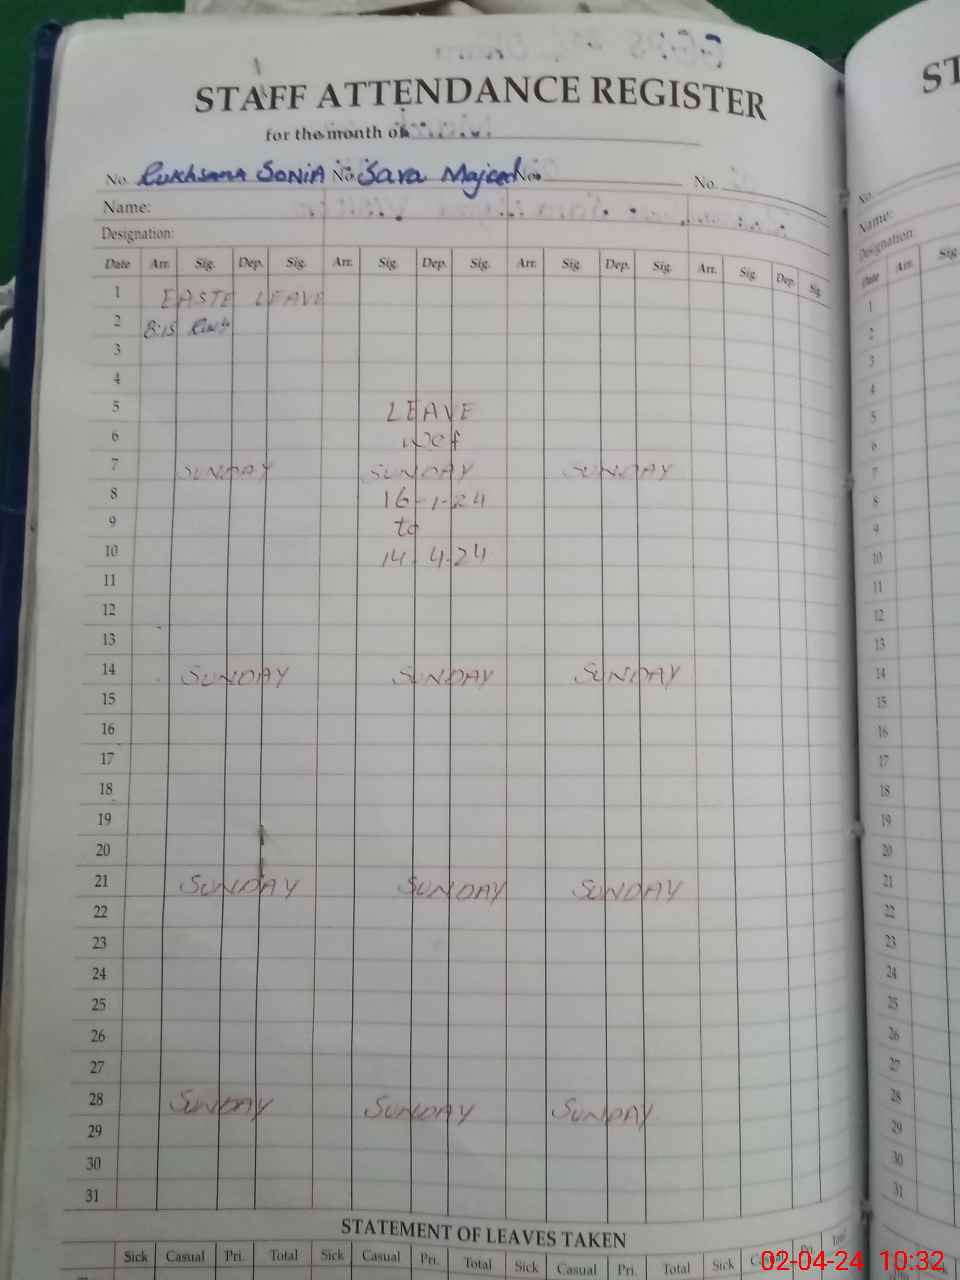 STAFF ATTENDANCE REGISTER
for the month of
No. Rukhsana SONIA No. Sara Majeed No. No.
Name:
Designation:
Date Arr. Sig. Dep. Sig. Arr. Sig. Dep. Sig. Arr. Sig. Dep. Sig. Arr. Sig. Dep. Sig.
1 EASTE LEAVE
2 8:15
3
4
5 LEAVE
6 wef
7 SUNDAY SUNDAY SUNDAY
8 16-1-24
9 to
10 14 4-24
11
12
13
14 SUNDAY SUNDAY SUNDAY
15
16
17
18
19
20
21 SUNDAY SUNDAY SUNDAY
22
23
24
25
26
27
28 SUNDAY SUNDAY SUNDAY
29
30
31
STATEMENT OF LEAVES TAKEN
Sick Casual Pri. Total Sick Casual Pri. Total Sick Casual Pri. Total Sick
ST
No.
Name:
Designation:
Date Arr. Sig.
1
2
3
4
5
6
7
8
9
10
11
12
13
14
15
16
17
18
19
20
21
22
23
24
25
26
27
28
29
30
31
02-04-24 10:32